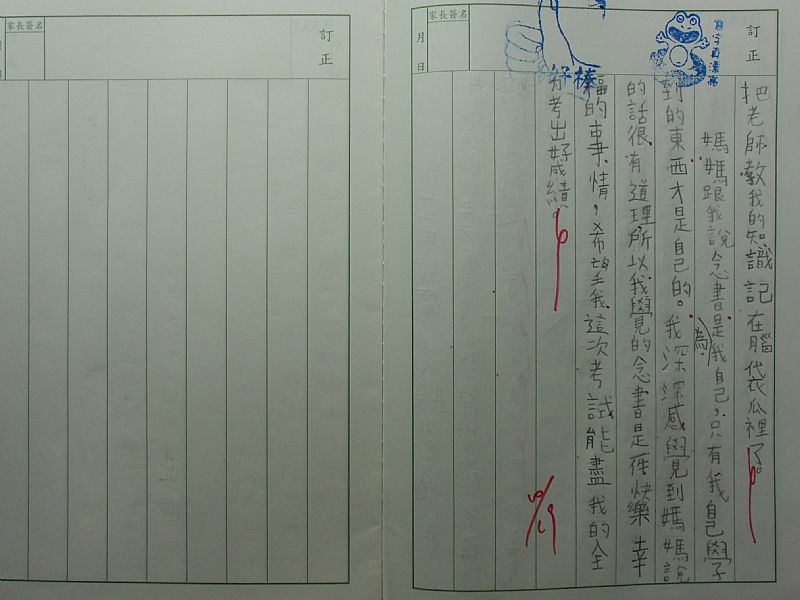 訂正
把老師教我的知識記在腦袋瓜裡了。
媽媽跟我說念書是為我自己，只有我自己學
到的東西才是自己的。我深深感覺到媽媽說
的話很有道理，所以我覺的念書是一件快樂幸
福的事情，希望我這次考試能盡我的全
力考出好成績。
字真漂亮
好棒
家長簽名
月 日
訂正
家長簽名
月 日